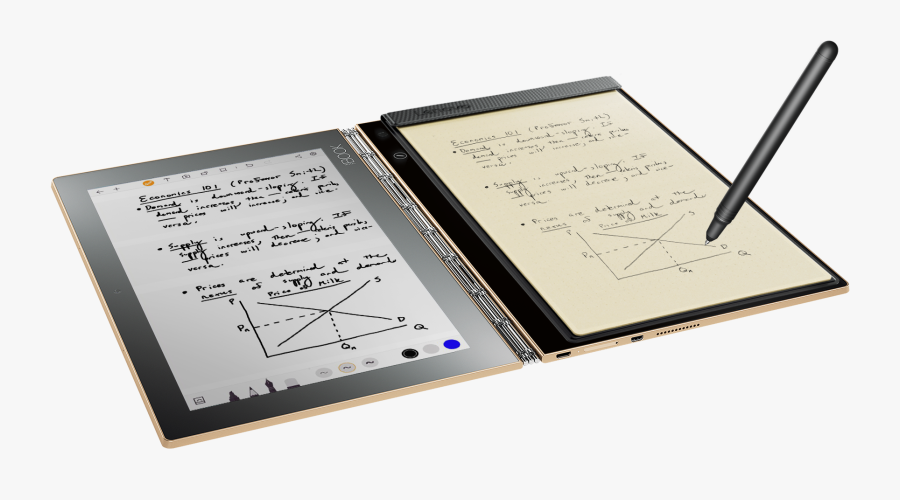 Economics 101 (Professor Smith)
• Demand is downward-sloping. If
demand increases, then
prices will increase, and vice-
versa.
• Supply is upward sloping. If
supply increases, then
prices will decrease, and vice-
versa.
• Prices are determined at the
nexus of supply and demand
Price of Milk
P
S
Pn
D
Q
Qn
Economics 101 (Professor Smith)
• Demand is downward-sloping. If
demand increases, then
prices will increase, and vice-
versa.
• Supply is upward sloping. If
supply increases, then
prices will decrease, and vice-
versa.
• Prices are determined at the
nexus of supply and demand
Price of Milk
P
S
Pn
D
Q
Qn